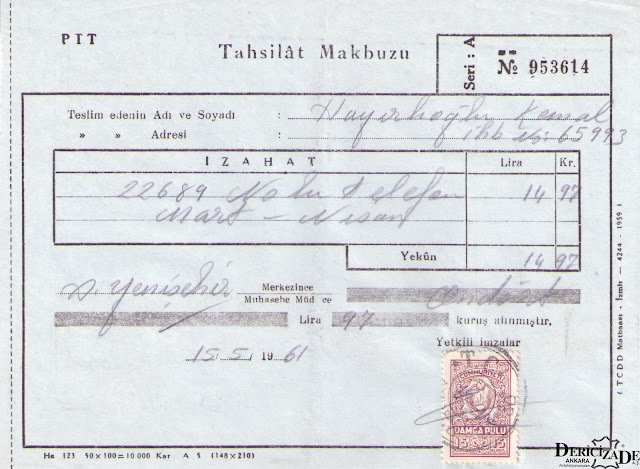 PTT
Tahsilât Makbuzu
Seri : A
№ 953614
Teslim edenin Adı ve Soyadı : Hayırlıoğlu Kemal
» » Adresi : ihb No: 65993
İZAHAT Lira Kr.
22689 Nolu telefon 14 97
Mart - Nisan
Yekûn 14 97
Yenişehir Merkezince Muhasebe Müd ce Ondört
Lira 97 kuruş alınmıştır.
Yetkili imzalar
15 5 1961
CUMHURİYETİ
DAMGA PULU
15 15
He 123 50×100=10 000 Kar A 5 (148×210)
( TCDD Matbaası - İzmir — 4244 - 1959 )
DERICIZADE
ANKARA